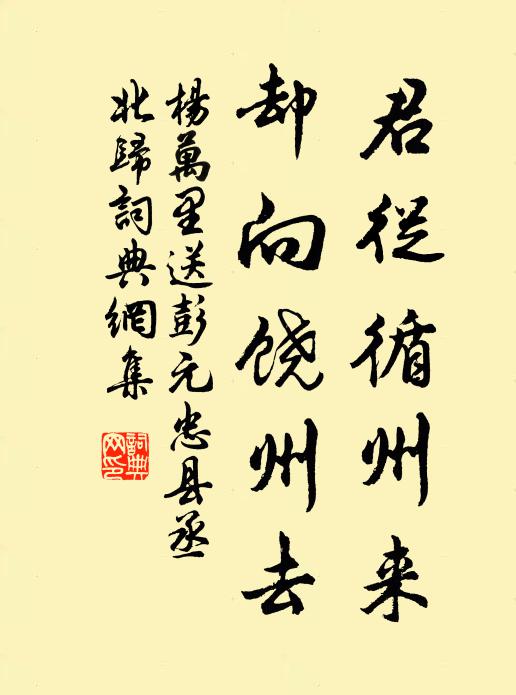 君從循州来
却向饶州去
楊萬里送彭元忠县丞
北歸詞典網集
詞典网印